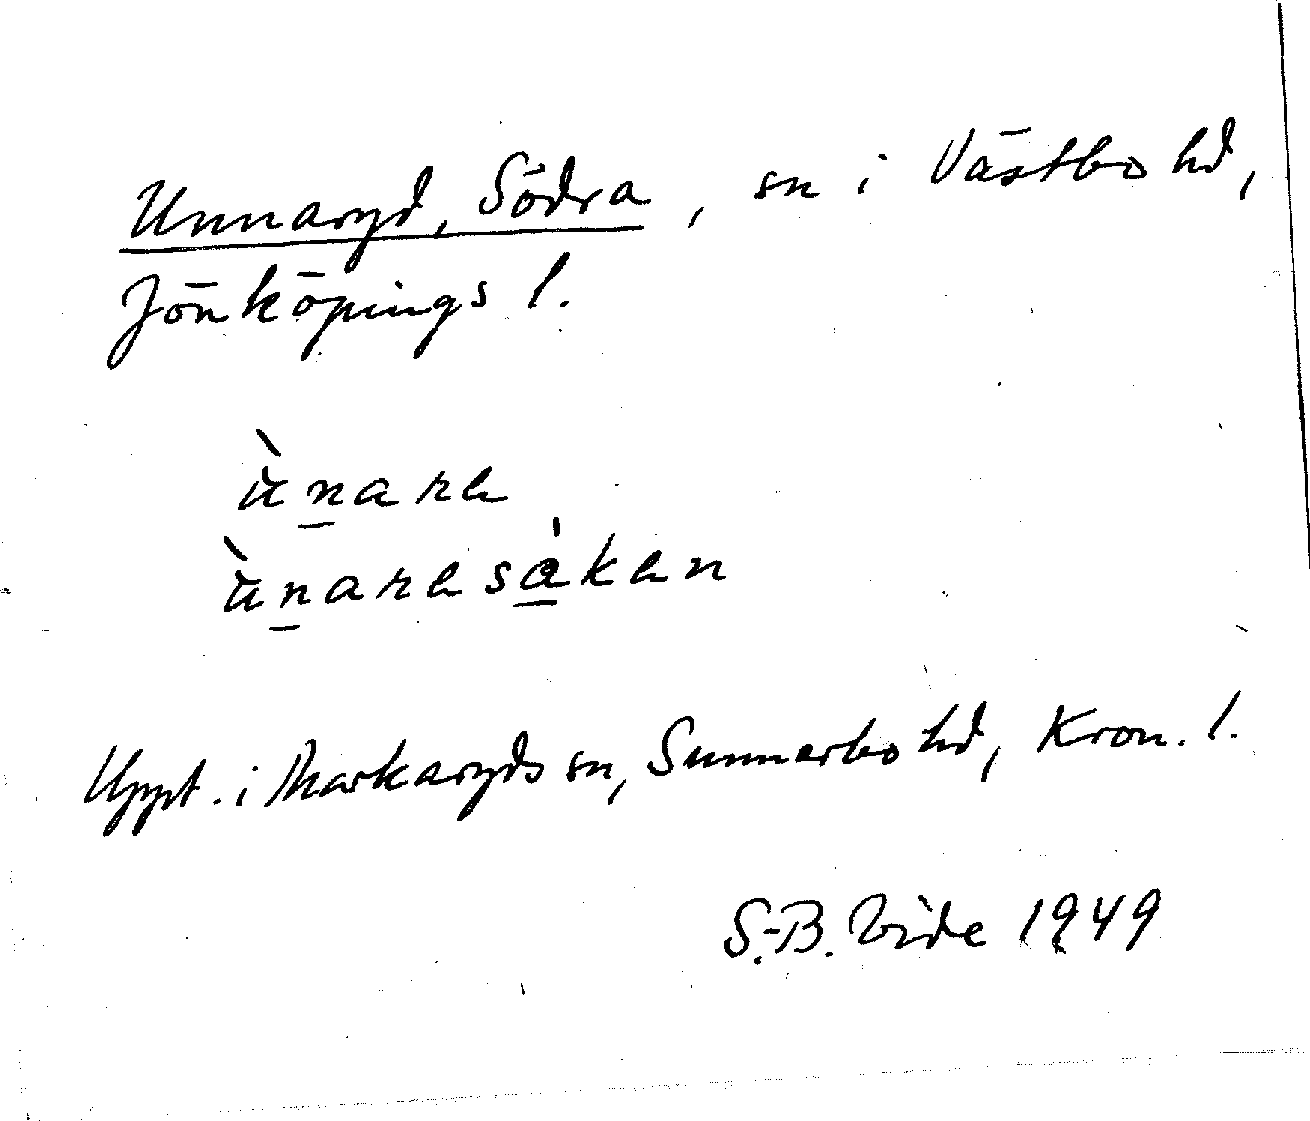 Unnaryd, Södra, sn i Västbo hd,
Jönköpings l.
ùnare
ùnaresåken
Uppt. i Markaryds sn, Sunnerbo hd, Kron. l.
S.-B. Vide 1949